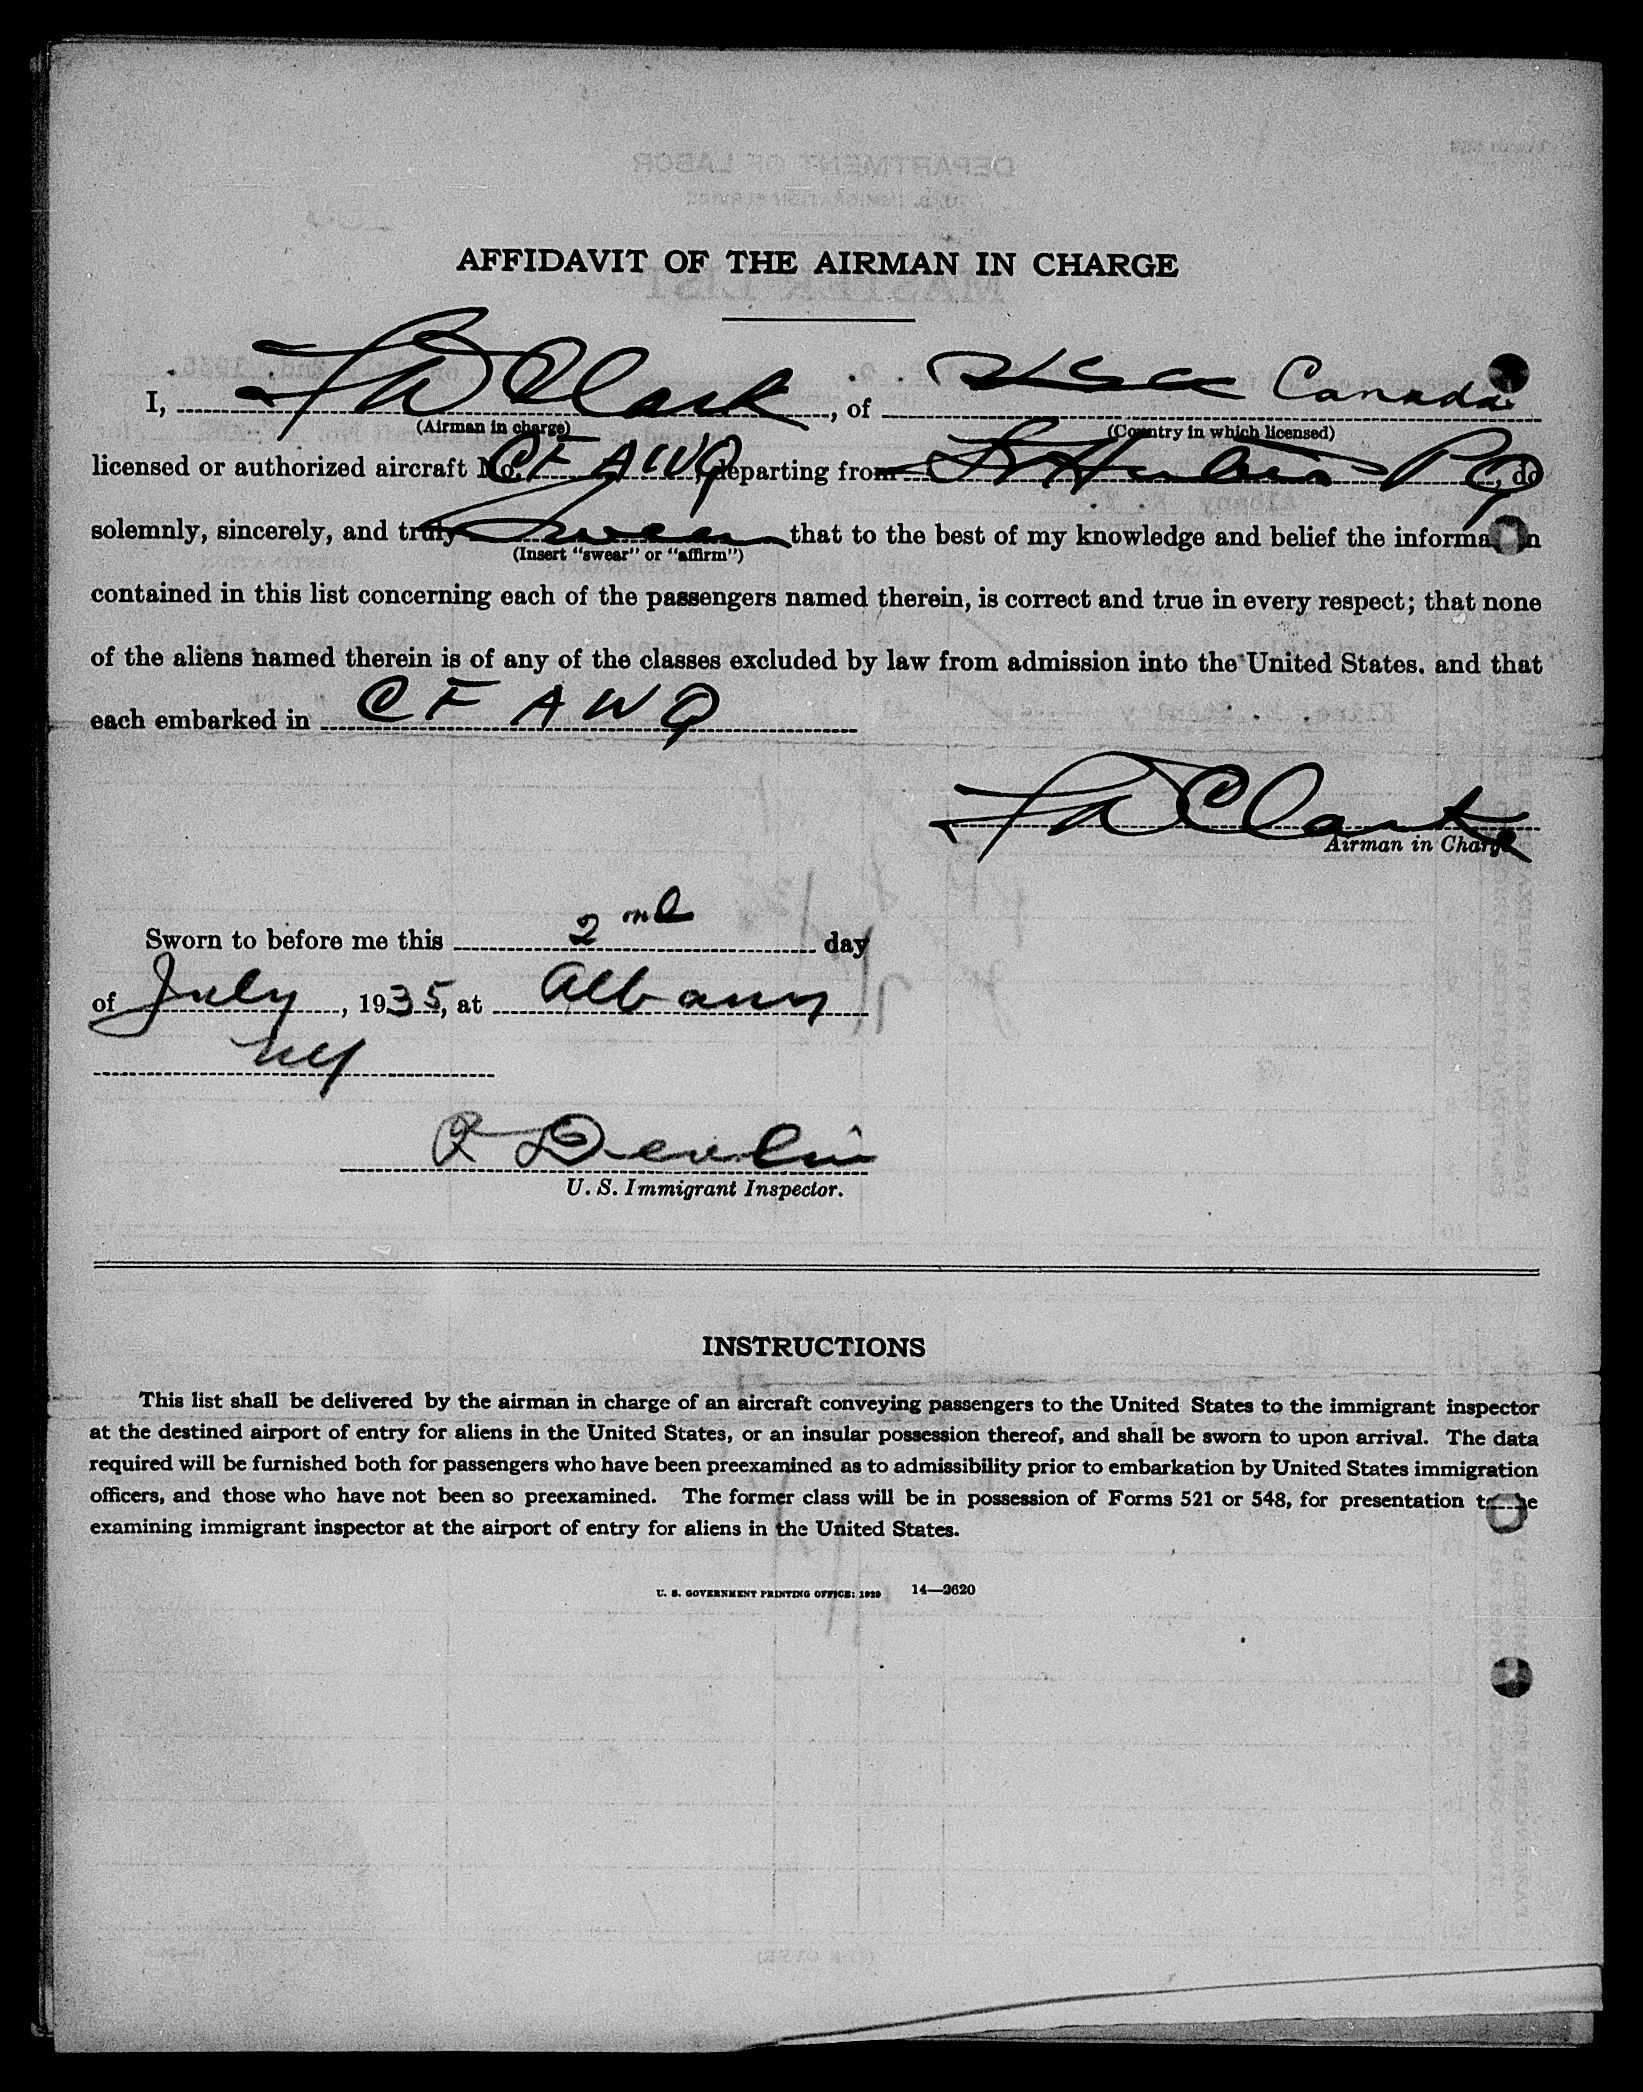 AFFIDAVIT OF THE AIRMAN IN CHARGE
I, Clark, of Canada
(Airman in charge) (Country in which licensed)
licensed or authorized aircraft No. CF AWQ, departing from St Hubert PQ, do
solemnly, sincerely, and truly swear that to the best of my knowledge and belief the information
(Insert "swear" or "affirm")
contained in this list concerning each of the passengers named therein, is correct and true in every respect; that none
of the aliens named therein is of any of the classes excluded by law from admission into the United States, and that
each embarked in CF AWQ
Clark
Airman in Charge
Sworn to before me this 2nd day
of July, 1935, at Albany
NY
R Devlin
U. S. Immigrant Inspector.
INSTRUCTIONS
This list shall be delivered by the airman in charge of an aircraft conveying passengers to the United States to the immigrant inspector
at the destined airport of entry for aliens in the United States, or an insular possession thereof, and shall be sworn to upon arrival. The data
required will be furnished both for passengers who have been preexamined as to admissibility prior to embarkation by United States immigration
officers, and those who have not been so preexamined. The former class will be in possession of Forms 521 or 548, for presentation to the
examining immigrant inspector at the airport of entry for aliens in the United States.
U. S. GOVERNMENT PRINTING OFFICE: 1929 14—2620